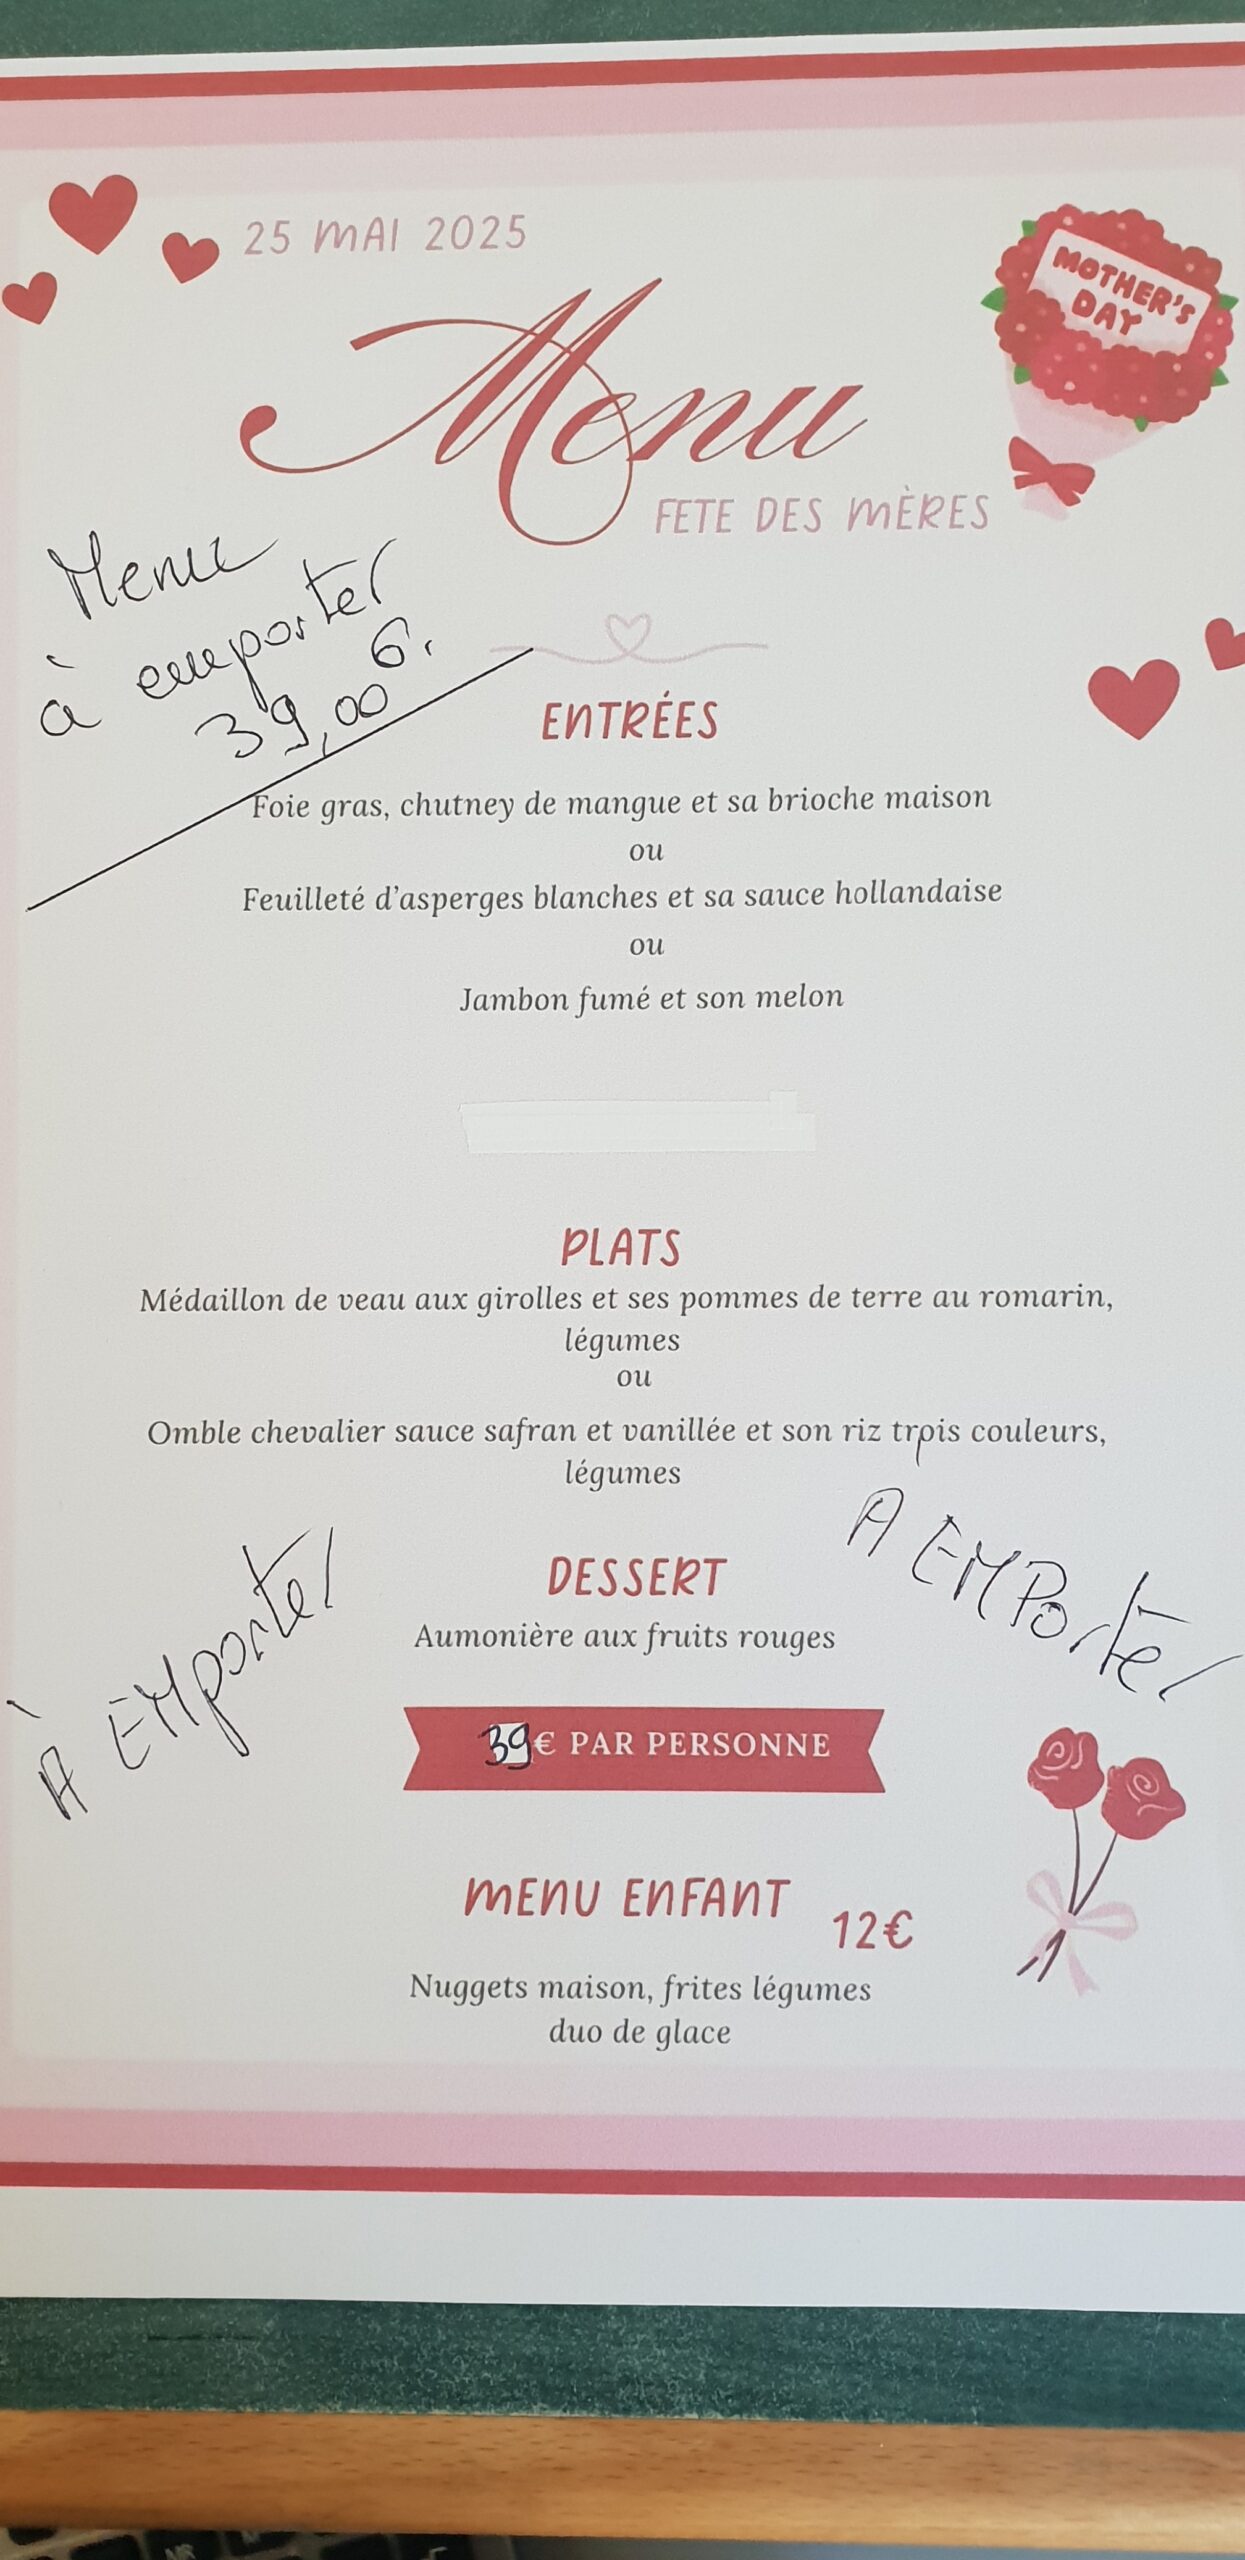 25 MAI 2025
MOTHER'S
DAY
Menu
FETE DES MÈRES
Menu
à emporter
39,00 €.
ENTRÉES
Foie gras, chutney de mangue et sa brioche maison
ou
Feuilleté d'asperges blanches et sa sauce hollandaise
ou
Jambon fumé et son melon
PLATS
Médaillon de veau aux girolles et ses pommes de terre au romarin,
légumes
ou
Omble chevalier sauce safran et vanillée et son riz trois couleurs,
légumes
A EMPorter
DESSERT
Aumonière aux fruits rouges
À EMporter
39€ PAR PERSONNE
MENU ENFANT
12€
Nuggets maison, frites légumes
duo de glace